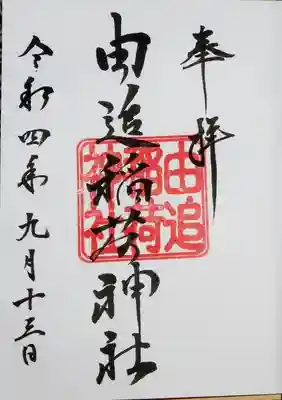 奉拝
由追稲荷神社
由追稲荷神社
令和四年九月十三日